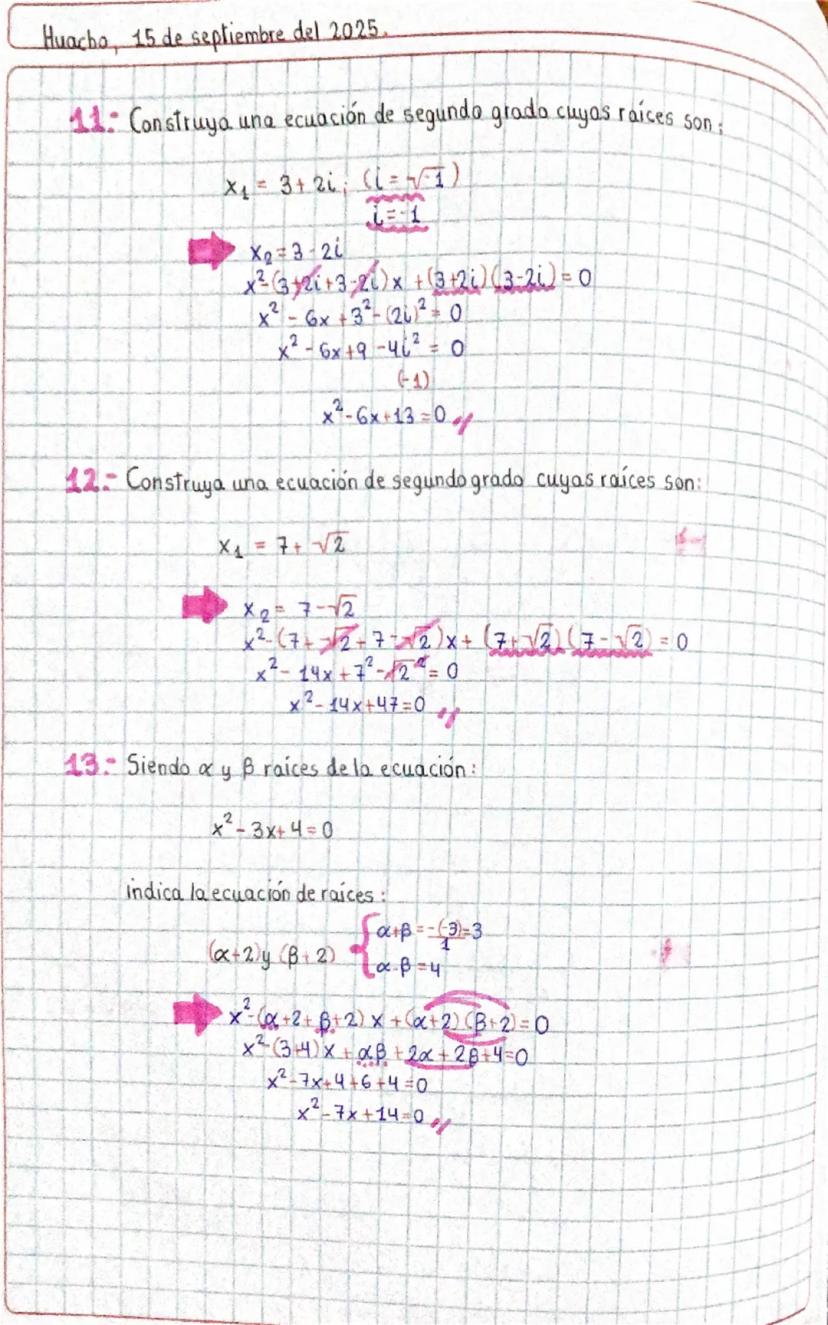 Huacho, 15 de septiembre del 2025.
11.- Construya una ecuación de segundo grado cuyas raíces son:
x₁ = 3 + 2i; (i = √-1)
i = -1
x₂ = 3 - 2i
x² - (3 + 2i + 3 - 2i)x + (3 + 2i)(3 - 2i) = 0
x² - 6x + 3² - (2i)² = 0
x² - 6x + 9 - 4i² = 0
(-1)
x² - 6x + 13 = 0 //
12.- Construya una ecuación de segundo grado cuyas raíces son:
x₁ = 7 + √2
x₂ = 7 - √2
x² - (7 + √2 + 7 - √2)x + (7 + √2)(7 - √2) = 0
x² - 14x + 7² - √2² = 0
x² - 14x + 47 = 0 //
13.- Siendo α y β raíces de la ecuación:
x² - 3x + 4 = 0
indica la ecuación de raíces:
(α + 2) y (β + 2) { α + β = -(-3)/1 = 3
α · β = 4
x² - (α + 2 + β + 2)x + (α + 2)(β + 2) = 0
x² - (3 + 4)x + αβ + 2α + 2β + 4 = 0
x² - 7x + 4 + 6 + 4 = 0
x² - 7x + 14 = 0 //